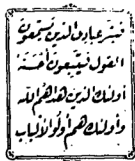 فبشر عبادي الذين يستمعون
القول فيتبعون أحسنه
أولئك الذين هداهم الله
وأولئك هم أولو الألباب